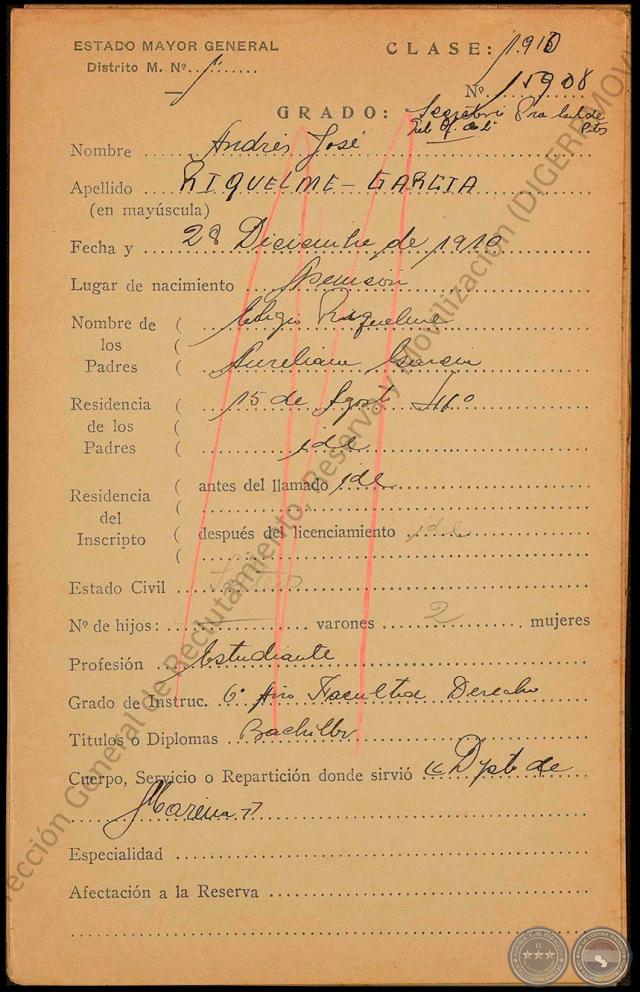 ESTADO MAYOR GENERAL
CLASE: 1.910
Distrito M. Nº. 1
Nº 15908
GRADO:
Nombre Andrés José
Apellido RIQUELME - GARCIA
(en mayúscula)
Fecha y 28 Diciembre de 1910
Lugar de nacimiento Asunción
Nombre de ( Riquelme
los (
Padres ( Aureliana Garcia
Residencia ( 15 de Agosto
de los (
Padres ( ide
Residencia ( antes del llamado ide
del (
Inscripto ( después del licenciamiento ide
(
Estado Civil Soltero
Nº de hijos: varones 2 mujeres
Profesión Estudiante
Grado de Instruc. 6º Año Facultad Derecho
Títulos o Diplomas Bachiller
Cuerpo, Servicio o Repartición donde sirvió "Dpto de
Marina"
Especialidad
Afectación a la Reserva
Dirección General de Reclutamiento, Reserva y Movilización (DIGERREMOVI